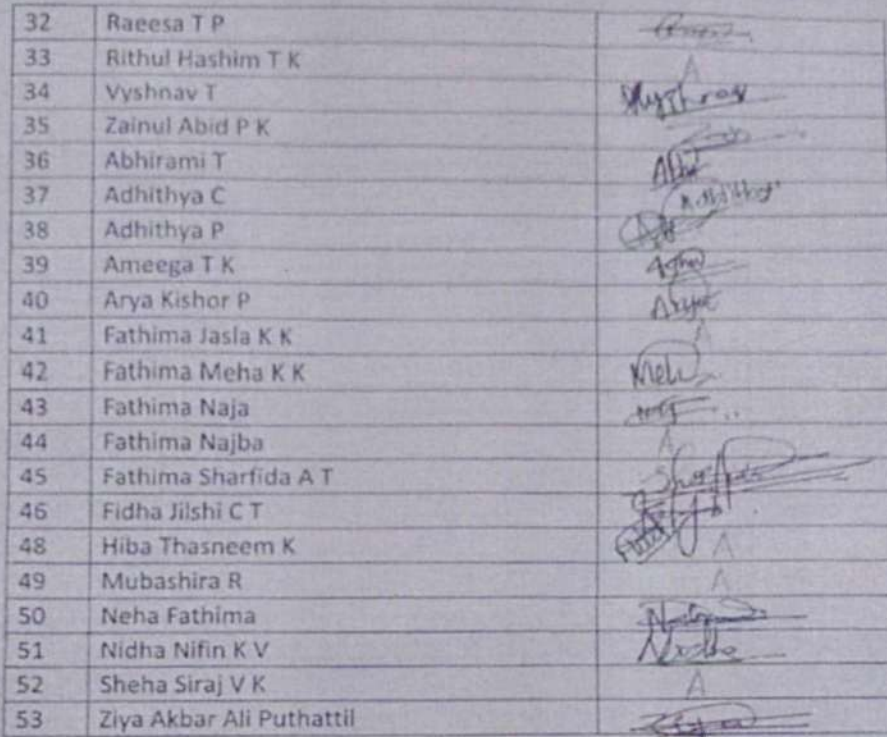 32 Raeesa T P
33 Rithul Hashim T K A
34 Vyshnav T
35 Zainul Abid P K
36 Abhirami T
37 Adhithya C
38 Adhithya P
39 Ameega T K
40 Arya Kishor P
41 Fathima Jasla K K A
42 Fathima Meha K K Meh
43 Fathima Naja
44 Fathima Najba A
45 Fathima Sharfida A T
46 Fidha Jilshi C T
48 Hiba Thasneem K A
49 Mubashira R A
50 Neha Fathima
51 Nidha Nifin K V Nidha
52 Sheha Siraj V K A
53 Ziya Akbar Ali Puthattil